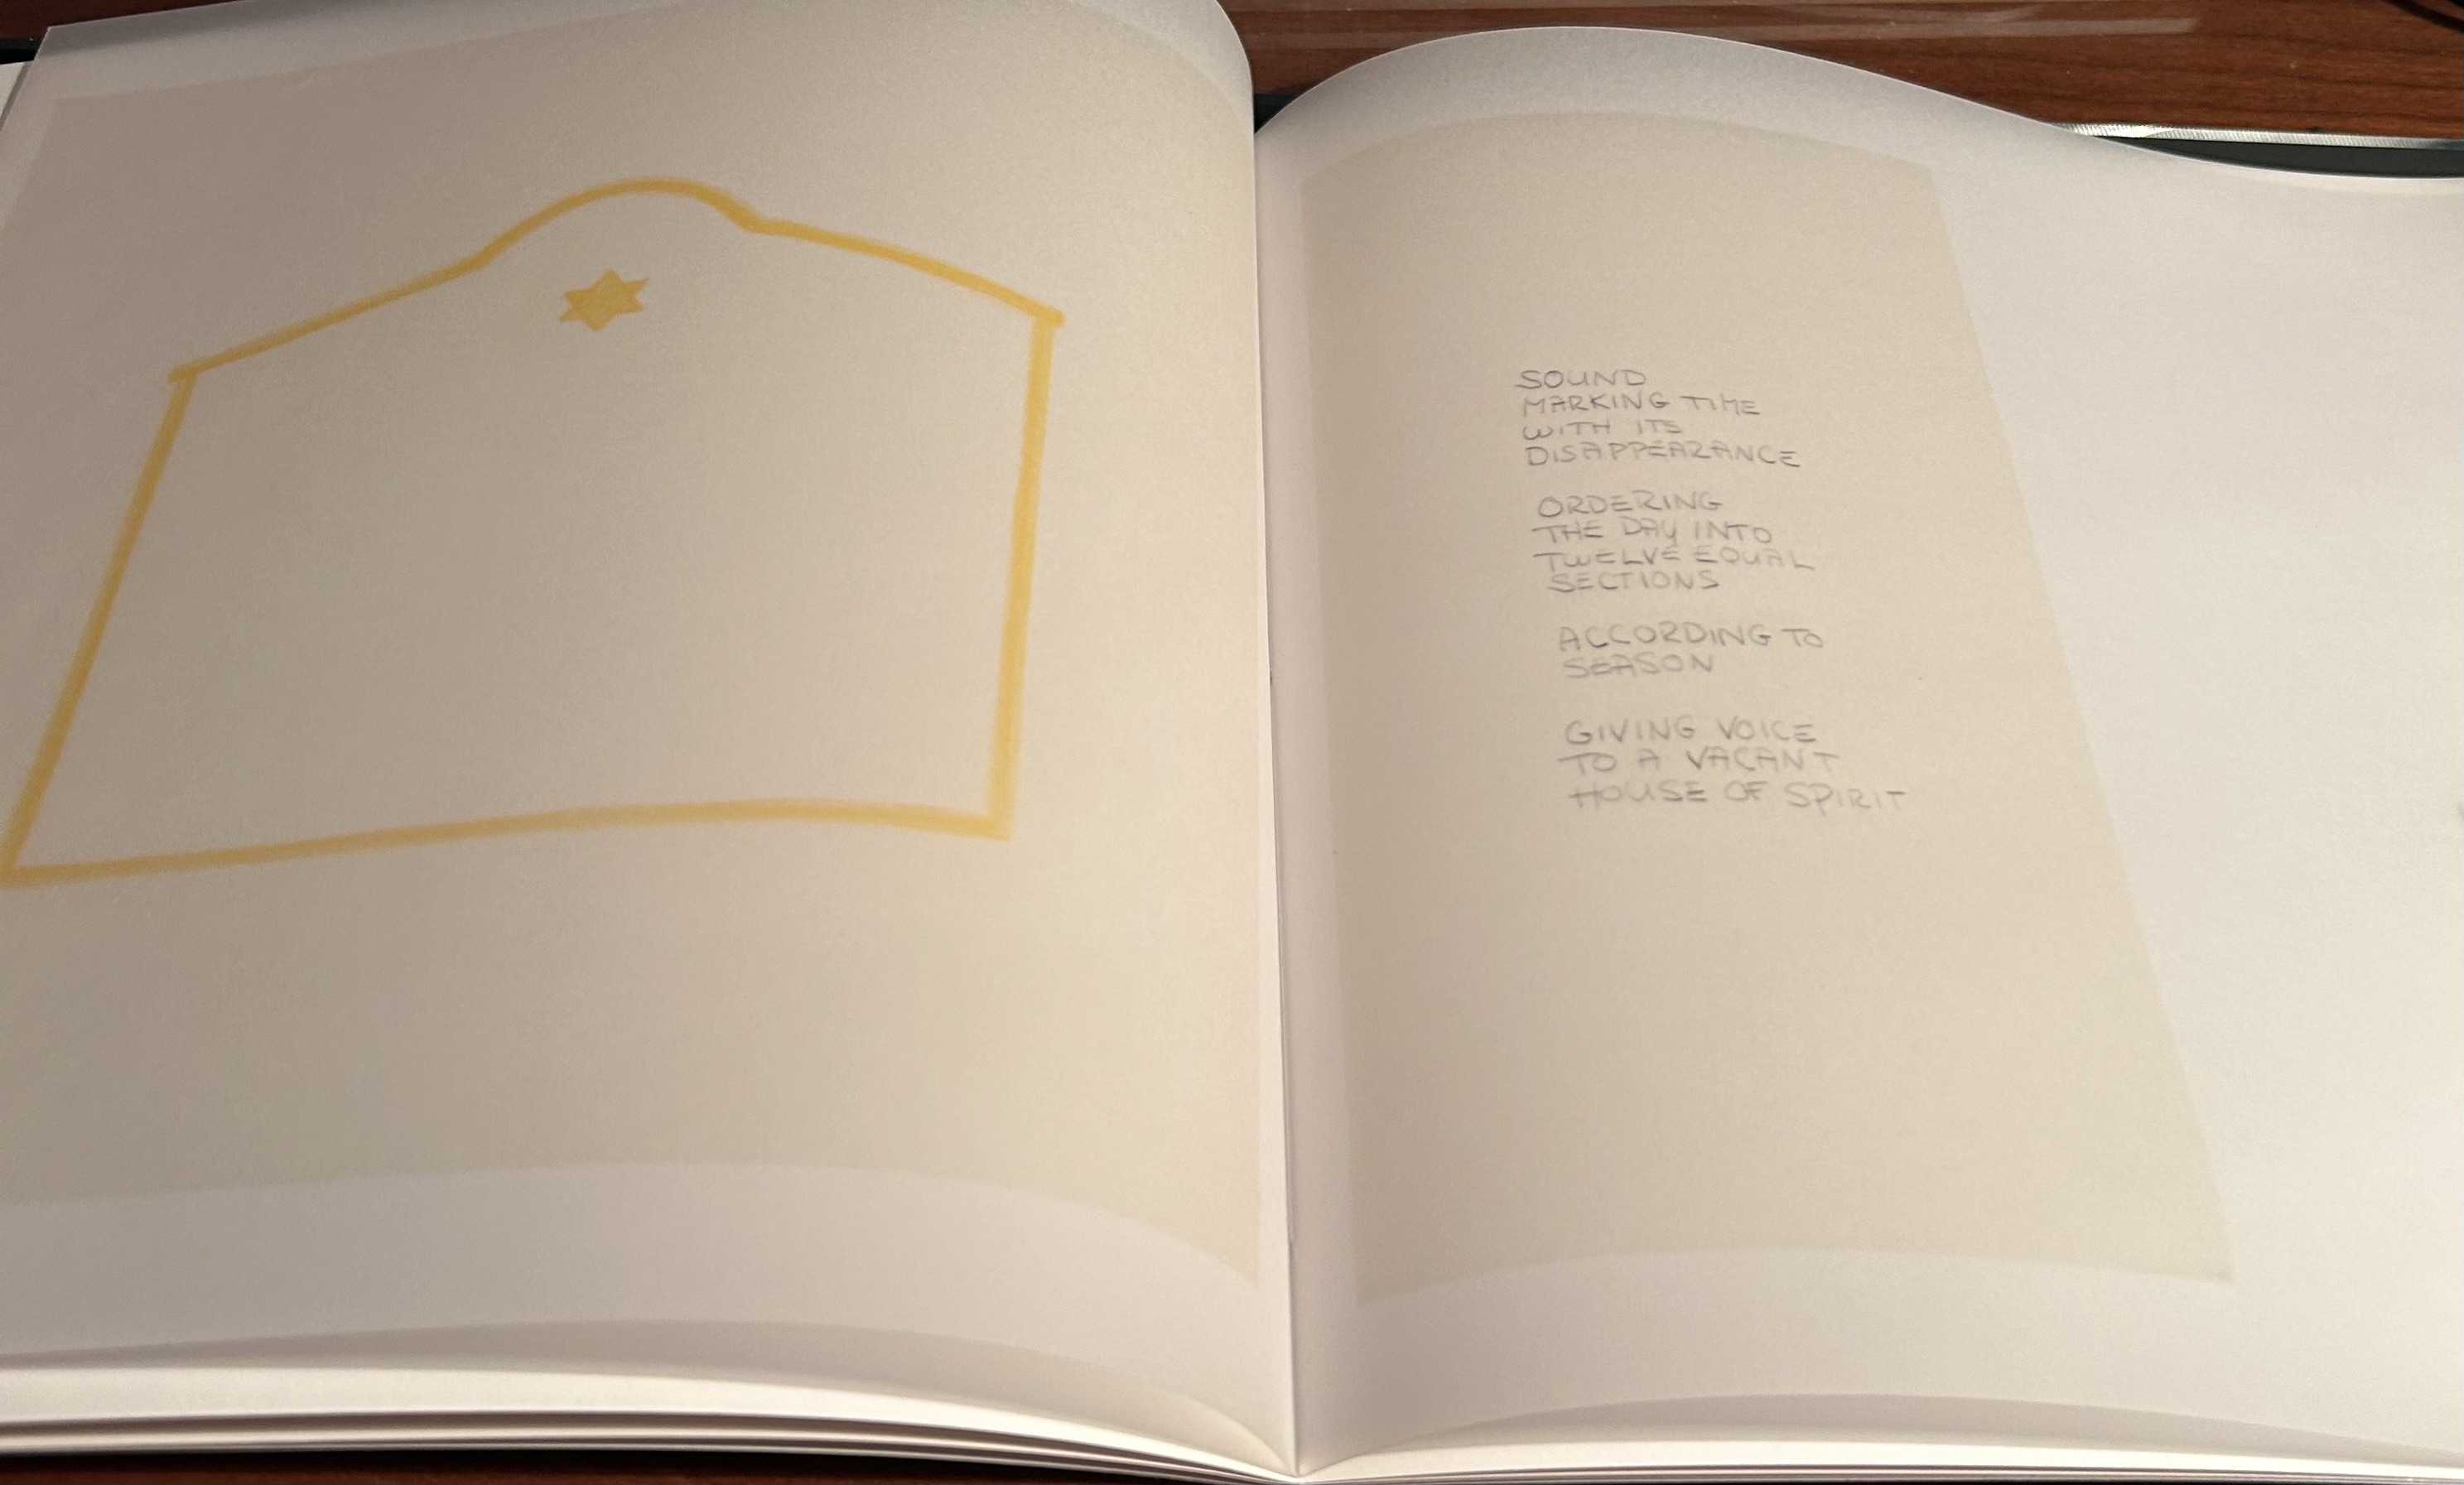 SOUND
MARKING TIME
WITH ITS
DISAPPEARANCE
ORDERING
THE DAY INTO
TWELVE EQUAL
SECTIONS
ACCORDING TO
SEASON
GIVING VOICE
TO A VACANT
HOUSE OF SPIRIT